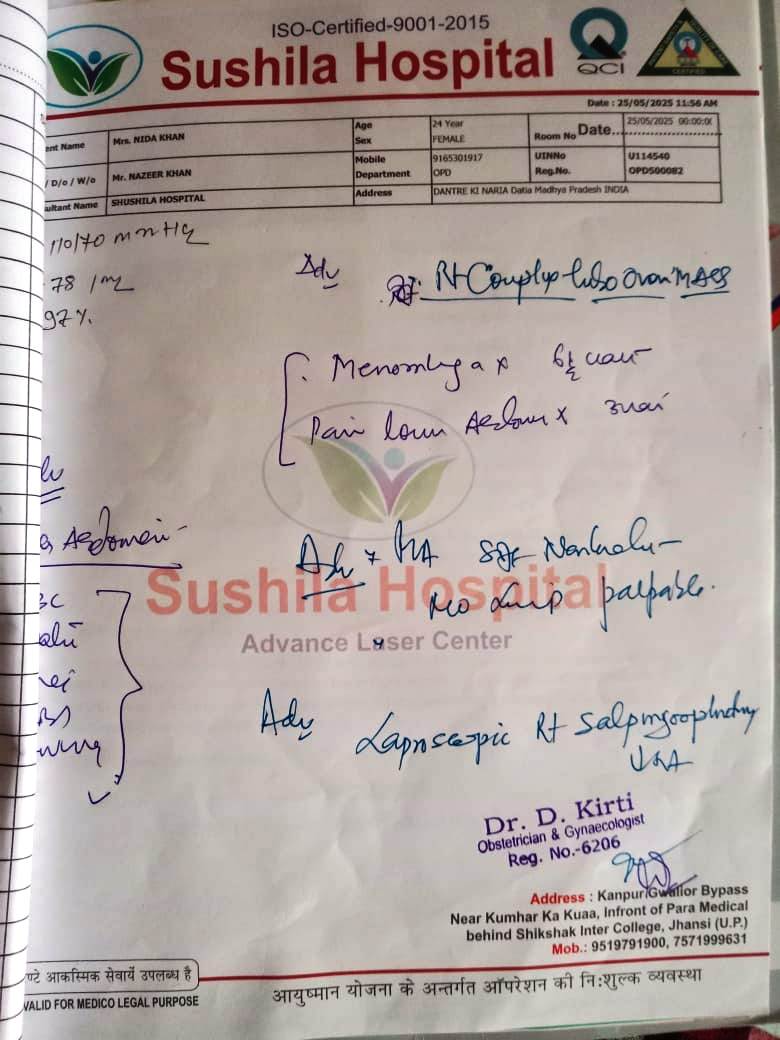 ISO-Certified-9001-2015
Sushila Hospital
QCI
CERTIFIED
Date : 25/05/2025 11:56 AM
ent Name Mrs. NIDA KHAN Age 24 Year Sex FEMALE Room No Date 25/05/2025
/ D/o / W/o Mr. NAZEER KHAN Mobile 9165301917 UINNo U114540
Department OPD Reg.No. OPD500082
ultant Name SHUSHILA HOSPITAL Address DANTRE KI NARIA Datia Madhya Pradesh INDIA
110/70 mmHg
78 /m
97%
Adv
Rt Complex tubo ovarian mass
Pain lower Abdomen x
Abdomen
P/A soft Nontender
No Lump palpable.
Sushila Hospital
Advance Laser Center
Adv Laproscopic Rt Salpingoophectomy
Dr. D. Kirti
Obstetrician & Gynaecologist
Reg. No.-6206
Address : Kanpur/Gwalior Bypass
Near Kumhar Ka Kuaa, Infront of Para Medical
behind Shikshak Inter College, Jhansi (U.P.)
Mob.: 9519791900, 7571999631
ण्टे आकस्मिक सेवायें उपलब्ध है
VALID FOR MEDICO LEGAL PURPOSE
आयुष्मान योजना के अन्तर्गत ऑपरेशन की नि:शुल्क व्यवस्था